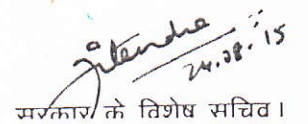 jitendra
24.08.15
सरकार के विशेष सचिव।